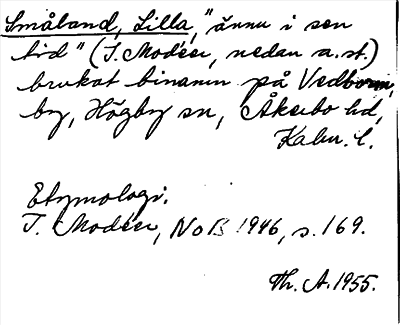 Småland, Lilla, "ännu i sen
tid" (I. Modéer, nedan a. st.)
brukat binamn på Vedborm,
by, Högby sn, Åkerbo hd,
Kalm. l.
Etymologi.
I. Modéer, NoB 1946, s. 169.
Th. A. 1955.